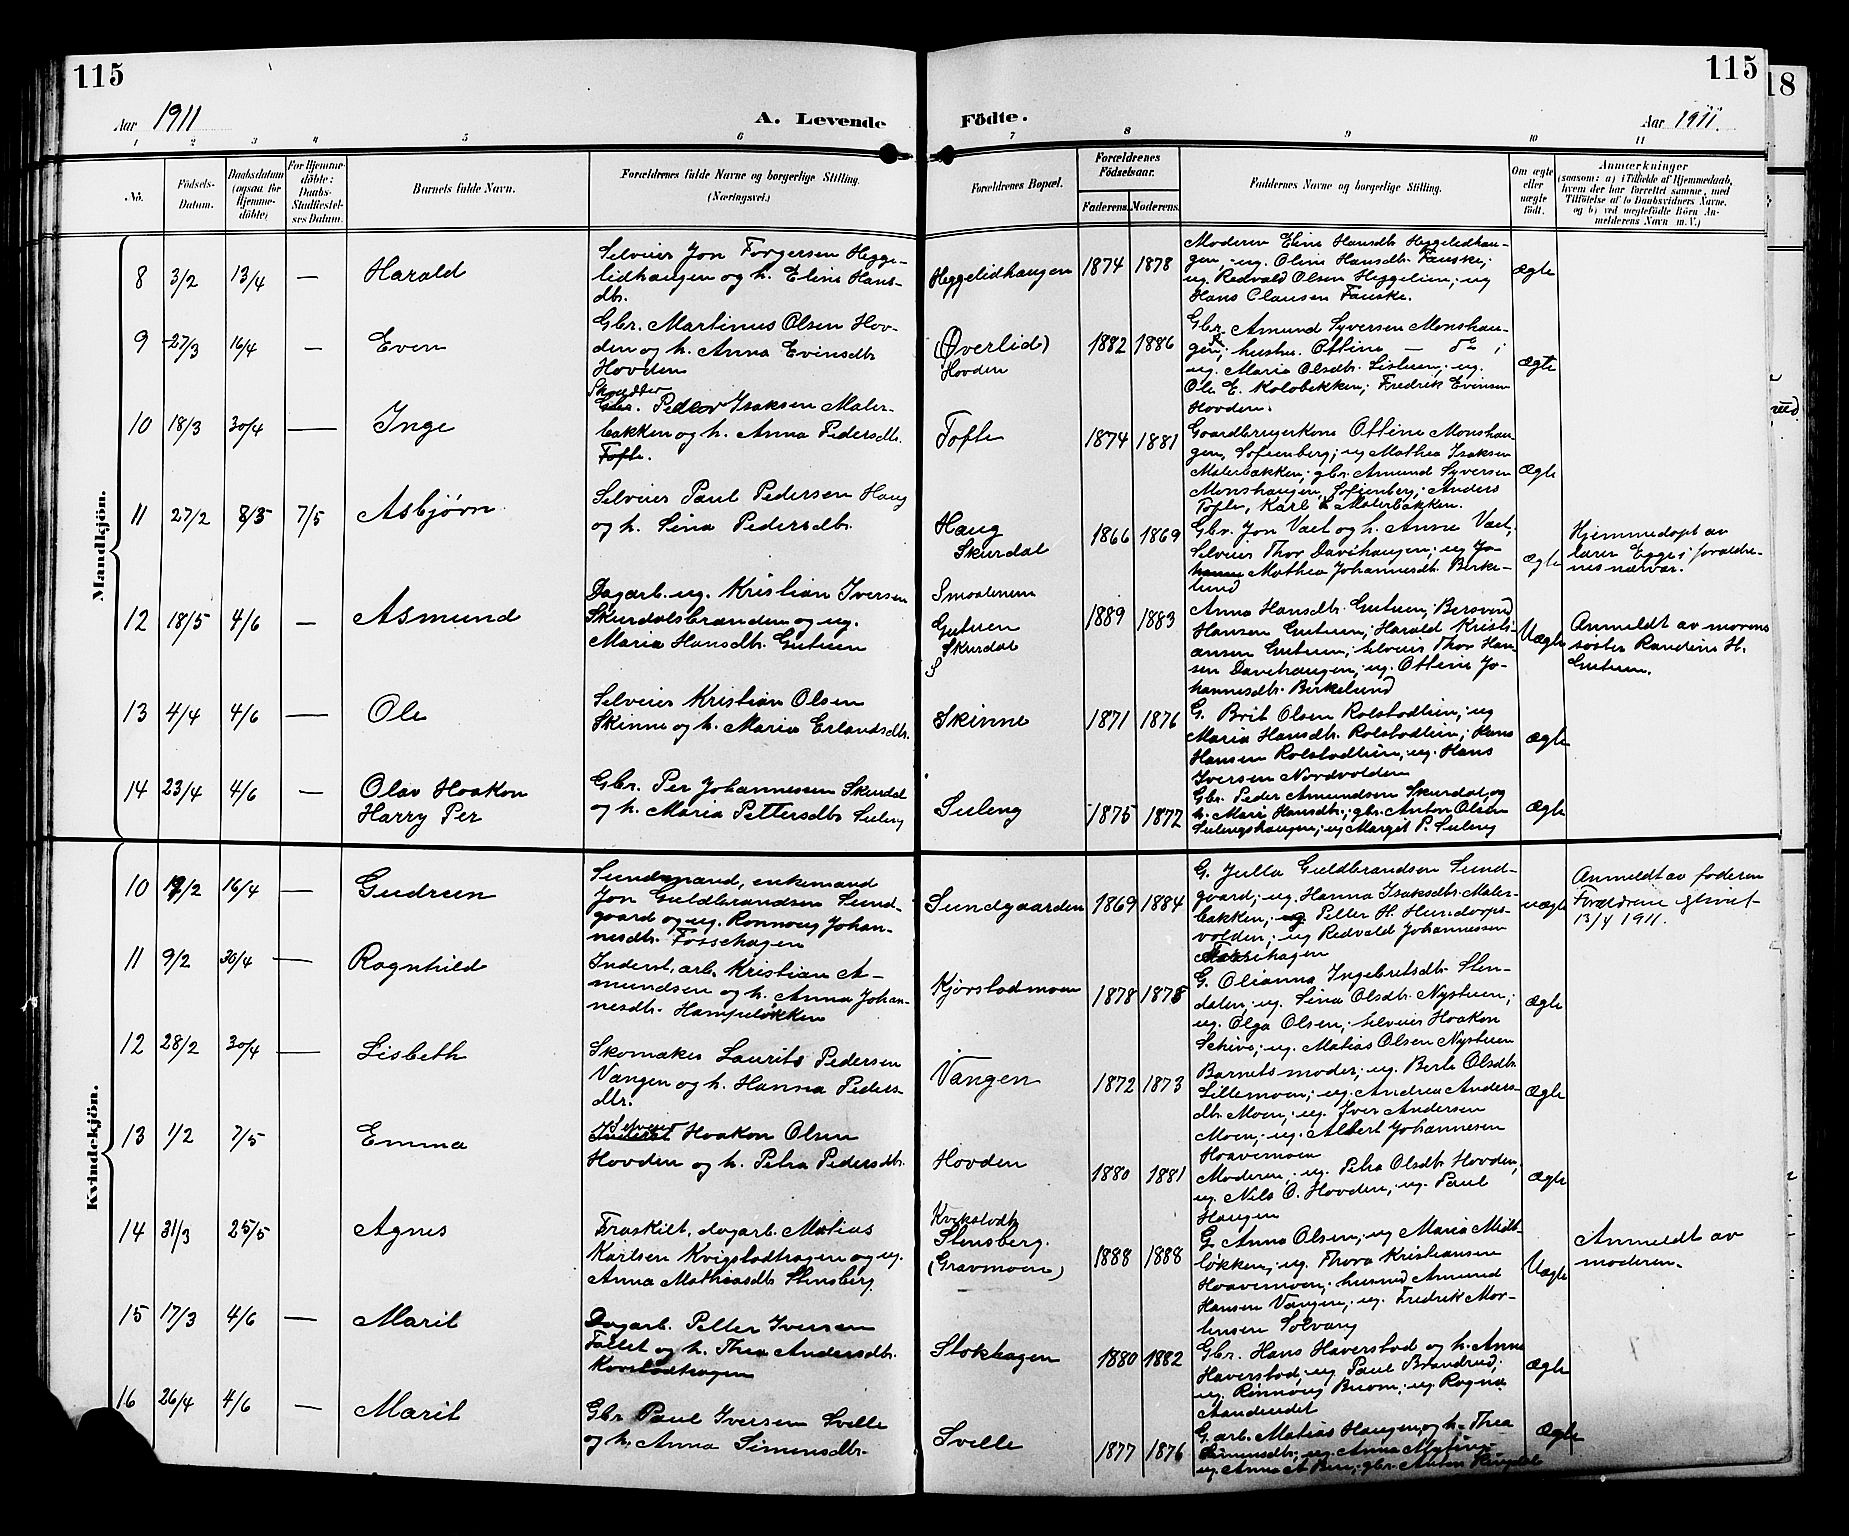 115
115
18
Aar 1911
A. Levende
Födte.
Aar 1911.
1 2 3 4 5 6 7 8 9 10 11
No.
Födsels-Datum.
Daabsdatum (ogsaa for Hjemme-döbte)
For Hjemme-döbte: Daabs-Stadfæstel-ses Datum.
Barnets fulde Navn.
Forældrenes fulde Navne og borgerlige Stilling.
(Næringsvei.)
Forældrenes Bopæl.
Forældrenes Födselsaar.
Faderens. Moderens.
Faddernes Navne og borgerlige Stilling.
Om ægte eller uægte födt.
Anmærkninger
(saasom: a) i Tilfælde af Hjemmedaab,
hvem der har forrettet samme, med
Tilföielse af to Daabsvidners Navne,
og b) ved uægtefödte Börn An-
melderens Navn m. V.)
Mandkjön.
8 3/2 13/4 — Harald
Selveier Jon Torgersen Hegge-
lidhaugen og h. Eline Hans-
dtr.
Heggelidhaugen 1874 1878
Moderen Eline Hansdtr. Heggelidhau-
gen; ug. Oline Hansdtr. Fauske;
ug. Redvald Olsen Heggelien; ug
Hans Clausen Fauske.
ægte
9 27/3 16/4 — Even
Gbr. Martinus Olsen Hov-
den og h. Anna Evensdtr.
Hovden
(Øverlid)
Hovden
1882 1886
Gbr. Amund Syversen Monshau-
gen; hustru Ottine — do ;
ug. Maria Olsdtr. Listuen; ug.
Ole E. Kolobekken; Fredrik Evensen
Hovden.
ægte
10 18/3 30/4 — Inge
Pedar Isaksen Maler-
bakken og h. Anna Pedersdtr.
Tofte.
Tofte 1874 1881
Gaardbrugerkone Ottine Monshau-
gen, Sofienberg; ug Mathea Isaksen
Malerbakken; gbr. Amund Syversen
Monshaugen, Sofienberg; Anders
Tofte, Karl Malerbakken.
ægte
11 27/2 8/3 7/5 Asbjørn
Selveier Paul Pedersen Haug
og h. Sina Pedersdtr.
Haug
Skurdal
1866 1869
Gbr. Jon Vaet og h. Anne Vaet,
Selveier Thor Davihaugen; ug Jo-
hanne Mathea Johannesdtr. Birke-
lund
ægte
Hjemmedøpt av
lærer Egge i forældre-
nes nærvær.
12 18/5 4/6 — Asmund
Dagarb. ug. Kristian Iversen
Skurdalsbranden og ug.
Maria Hansdtr. Gutuen
Smoalenem
Gutuen
Skurdal
S
1889 1883
Anna Hansdtr. Gutuen; Berovind
Hansen Gutuen; Harald Kristi-
ansen Gutuen; selveier Thor Han-
sen Davihaugen, ug. Ottine Jo-
hannesdtr. Birkelund
Uægte
Anmeldt av morens
søster Randine H.
Gutuen.
13 4/4 4/6 — Ole
Selveier Kristian Olsen
Skinne og h. Maria Erlandsdtr.
Skinne 1871 1876
G. Brit Olsen Rolstodlien; ug
Maria Hansdtr. Rolstodlien; Hans
Hansen Rolstodlien, ug. Hans
Iversen Nordvolden
ægte
14 23/4 4/6 — Olav Haakon
Harry Per
Gbr. Per Johannessen Skurdal
og h. Maria Pettersdtr. Suleng
Suleng 1875 1872
Gbr. Peder Amundsen Skurdal og
h. Mari Hansdtr.; gbr. Anton Olsen
Sulengshaugen; ug Marget P. Suleng
ægte
Kvindekjön.
10 19/2 16/4 — Gudrun
enkemand
Jon Guldbrandsen Sund-
gaard og ug. Rønnoug Johan-
nesdtr. Fossehagen
Sundgaarden 1869 1884
G. Julla Guldbrandsen Sund-
gaard; ug. Hanna Isaksdtr. Maler-
bakken; ug Petter H. Hundorps-
volden; ug Redvald Johannessen
Fossehagen
uægte
Anmeldt av faderen
Forældrene givet
13/4 1911.
11 9/2 30/4 — Ragnhild
Inderst, arb. Kristian A-
mundsen og h. Anna Johan-
nesdtr. Hampeløkken
Kjørstadmoen 1878 1878
G. Olianna Ingebretsdtr. Sten-
dalen; ug. Sina Olsdtr. Nystuen;
ug. Olga Olsen; selveier Haakon
Schive; ug. Matias Olsen Nystuen
ægte
12 28/2 30/4 — Lisbeth
Skomaker Laurits Pedersen
Vangen og h. Hanna Peders-
dtr.
Vangen 1872 1873
Barnets moder; ug. Berte Olsdtr.
Lillemoen; ug. Andrea Anders-
dtr. Moen; ug. Iver Andersen
Moen; ug. Albert Johannesen
Haavemoen
ægte
13 1/2 7/5 Emma
Selveier
Inderst Haakon Olsen
Hovden og h. Petra Pedersdtr.
Hovden 1880 1881
Moderen; ug. Petra Olsdtr. Hovden,
ug. Nils O. Hovden; ug. Paul
Haugen
ægte
14 31/3 25/5 Agnes
Fraskilt, dagarb. Matias
Karlsen Kvigstadhagen og ug.
Anna Mathiasdtr. Stensberg.
Stensberg.
(Gravmoen)
1888 1888
G. Anna Olsen; ug Maria Midt-
løkken; ug. Thora Kristiansen
Haavemoen; husmd Amund
Hansen Vangen; ug. Fredrik Mor-
tensen Solvang
Uægte
Anmeldt av
moderen.
15 17/3 4/6 — Marit
Dagarb. Petter Iversen
Fallet og h. Thea Andersdtr.
Stokhagen 1880 1882
Gbr. Hans Haverstad og h. Anne
Haverstad, ug Paul Brandrud;
ug. Rønnoug Bruom; ug. Ragna
ægte
16 26/4 4/6 — Marit
Gbr Paul Iversen Svelle
og h. Anna Simensdtr.
Svelle 1877 1876
G. arb. Matias Haugen og h. Thea
Simensdtr; ug. Anna Myting
ug. Anne A Brun; gbr. Anton
ægte